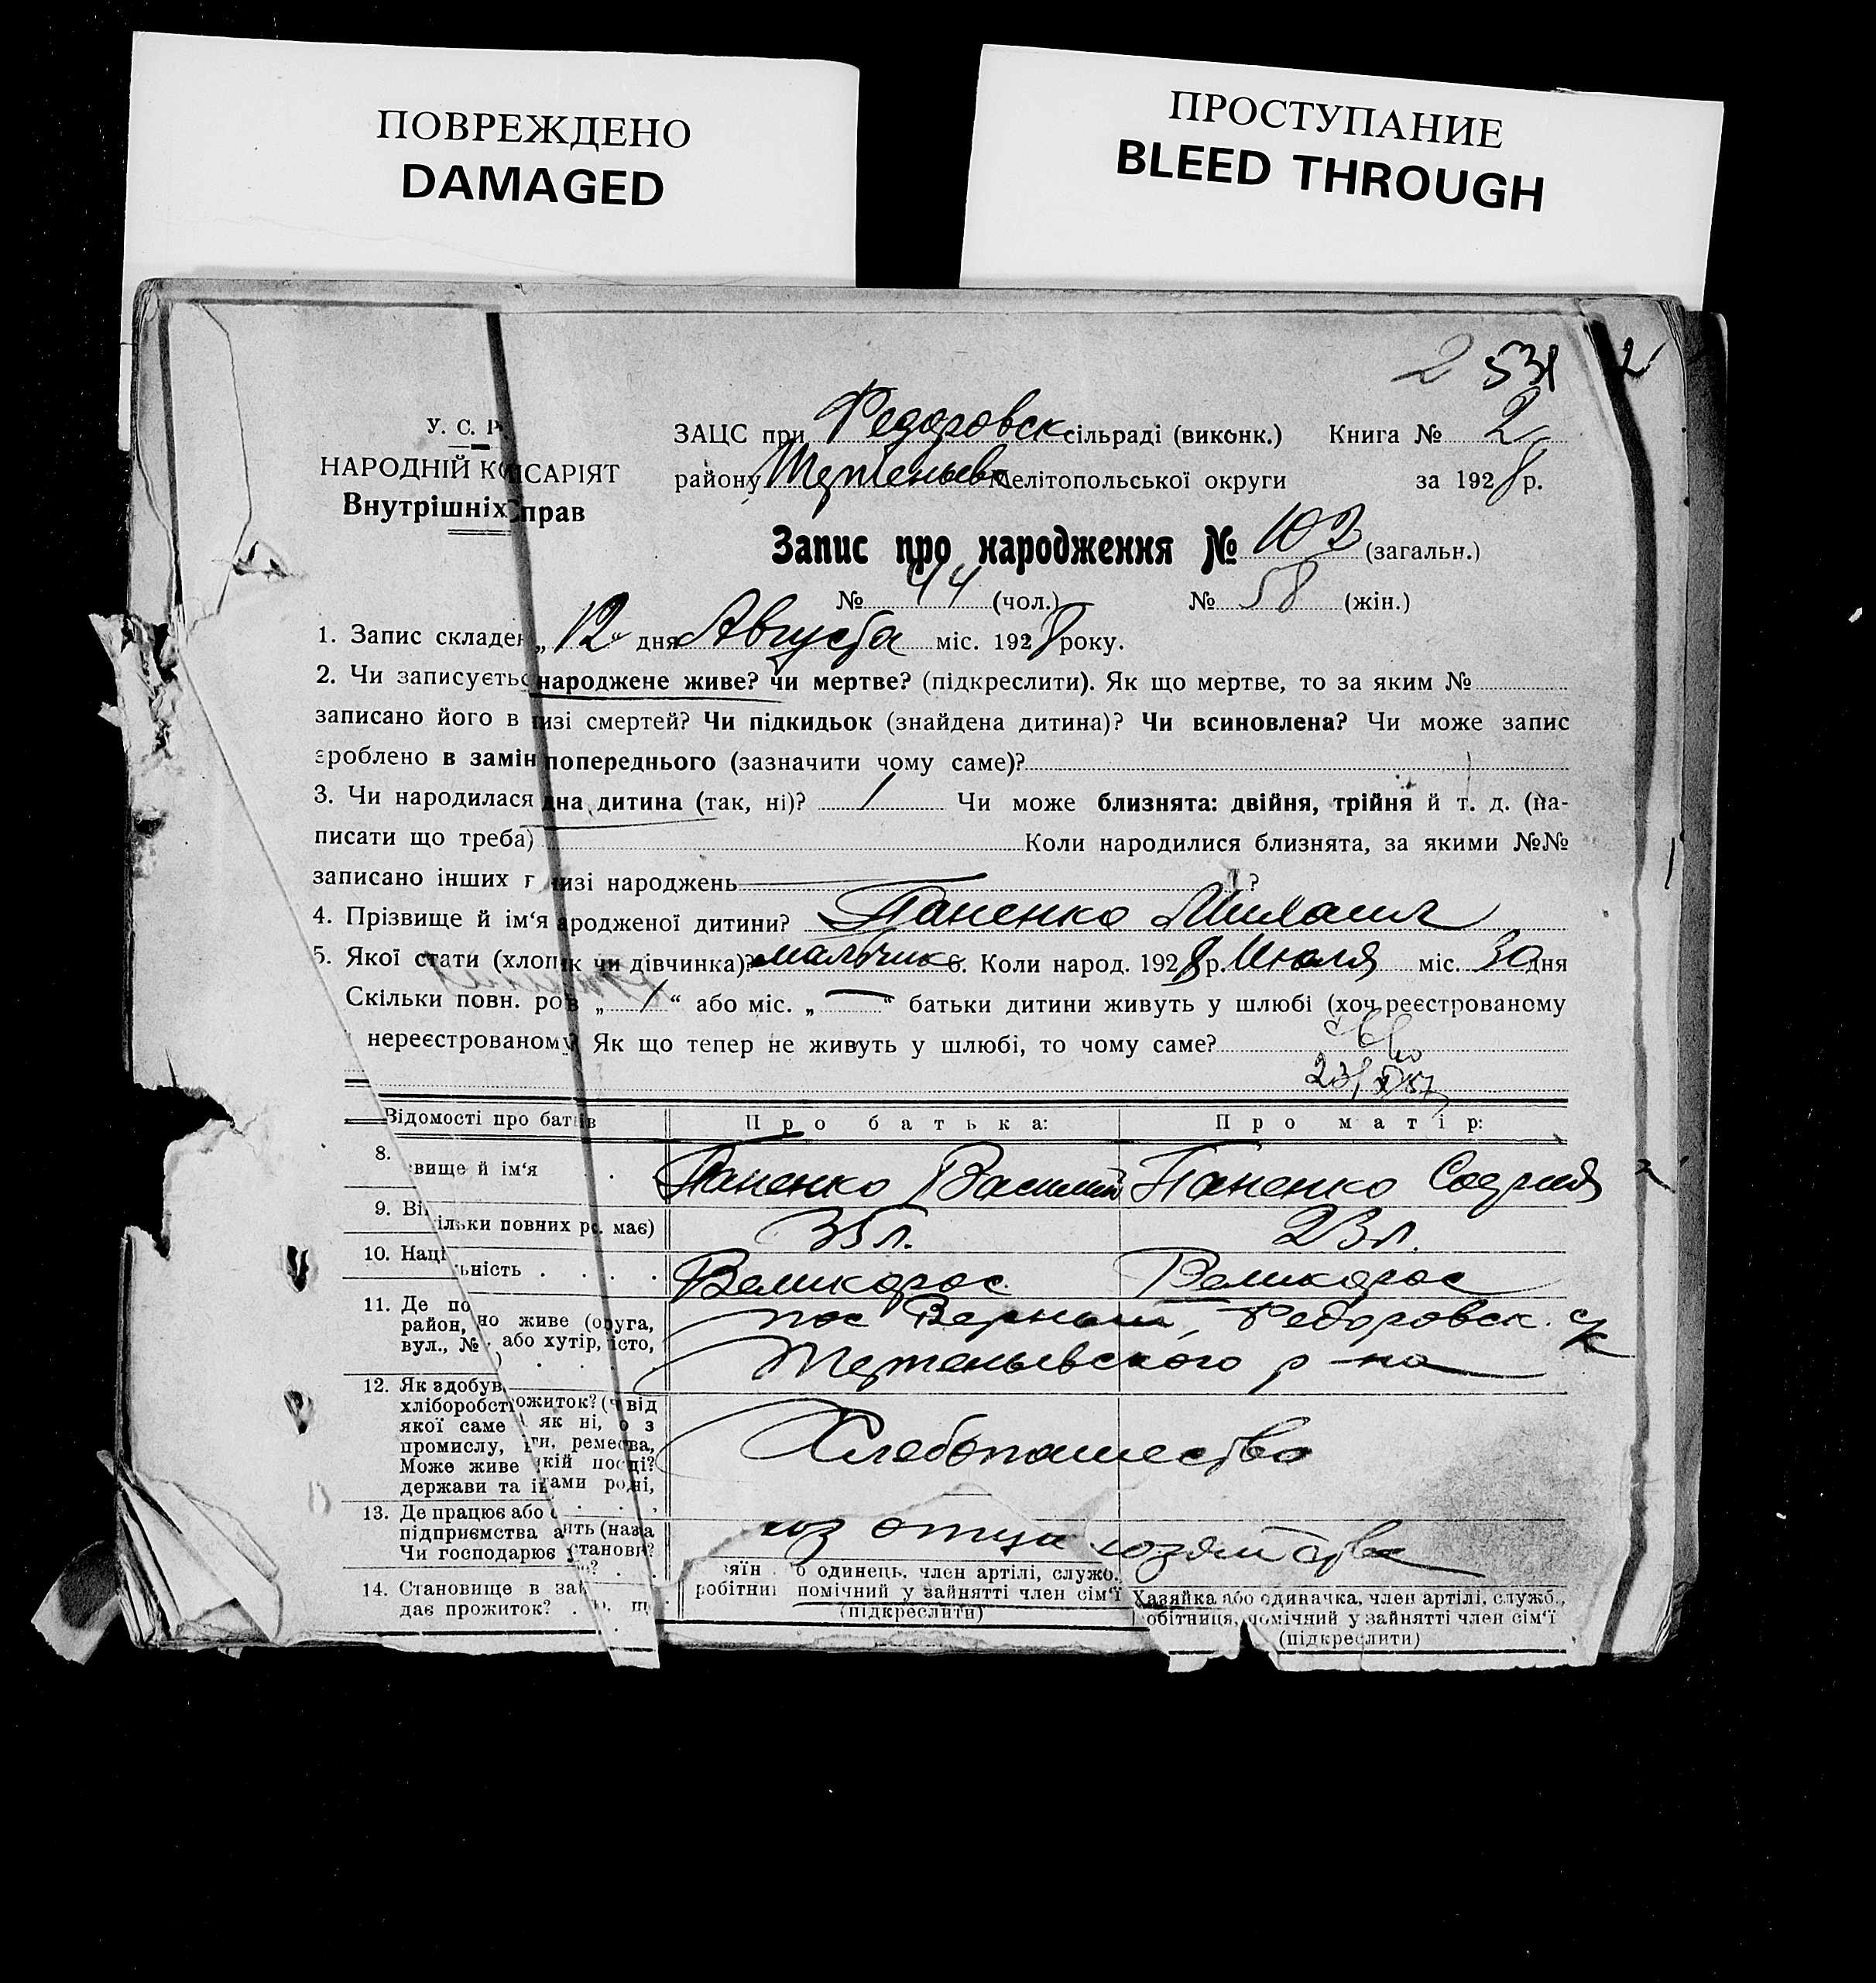 ПОВРЕЖДЕНО
DAMAGED
ПРОСТУПАНИЕ
BLEED THROUGH
2 531
2
У. С. Р.
НАРОДНІЙ КО ІСАРІЯТ
Внутрішніх прав
ЗАЦС при Федоровск сільраді (виконк.) Книга № 2
району Мелітопольської округи за 1928 р.
Запис про народження № 102 (загальн.)
№ 44 (чол.) № 58 (жін.)
1. Запис складен „12" дня Августа міс. 1928 року.
2. Чи записуєтьс народжене живе? чи мертве? (підкреслити). Як що мертве, то за яким №
записано його в изі смертей? Чи підкидьок (знайдена дитина)? Чи всиновлена? Чи може запис
зроблено в замін попереднього (зазначити чому саме)?
3. Чи народилася дна дитина (так, ні)? / Чи може близнята: двійня, трійня й т. д. (на-
писати що треба) Коли народилися близнята, за якими №№
записано інших г изі народжень ?
4. Прізвище й ім'я ародженої дитини? Паненко Михаил
5. Якої стати (хлопік чи дівчинка)? мальчик 6. Коли народ. 1928 р. Июля міс. 30 дня
Скільки повн. ро в „ / “ або міс. „ — “ батьки дитини живуть у шлюбі (хоч реєстрованому
нереєстрованому? Як що тепер не живуть у шлюбі, то чому саме?
Відомості про батьків
Про батька:
Про матір:
8. вище й ім'я . .
Паненко Василий
Паненко
9. Ві ільки повних ро. має)
35 л.
23 л.
10. Наці ьність . . . .
Великорос
Великорос
11. Де по но живе (округа,
район, або хутір, істо,
вул., № ) . . . .
пос Верный, Федоровск. с/к
р-на
12. Як здобув ожиток? (ч від
хліборобст як ні, о з
якої саме ги, ремества,
промислу, якій посаді?
Може живе ами родні,
держави та ін
Хлебопашество
13. Де працює або с ить (назва
підприємства а станови?
Чи господарює ?
отца
14. Становище в за
дає прожиток? .
яїн о одинець, член артілі, служб.
робітни помічний у зайнятті член сім'ї
(підкреслити)
Хазяйка або одиначка, член артілі, служб.,
обітниця, помічний у зайнятті член сім'ї
(підкреслити)